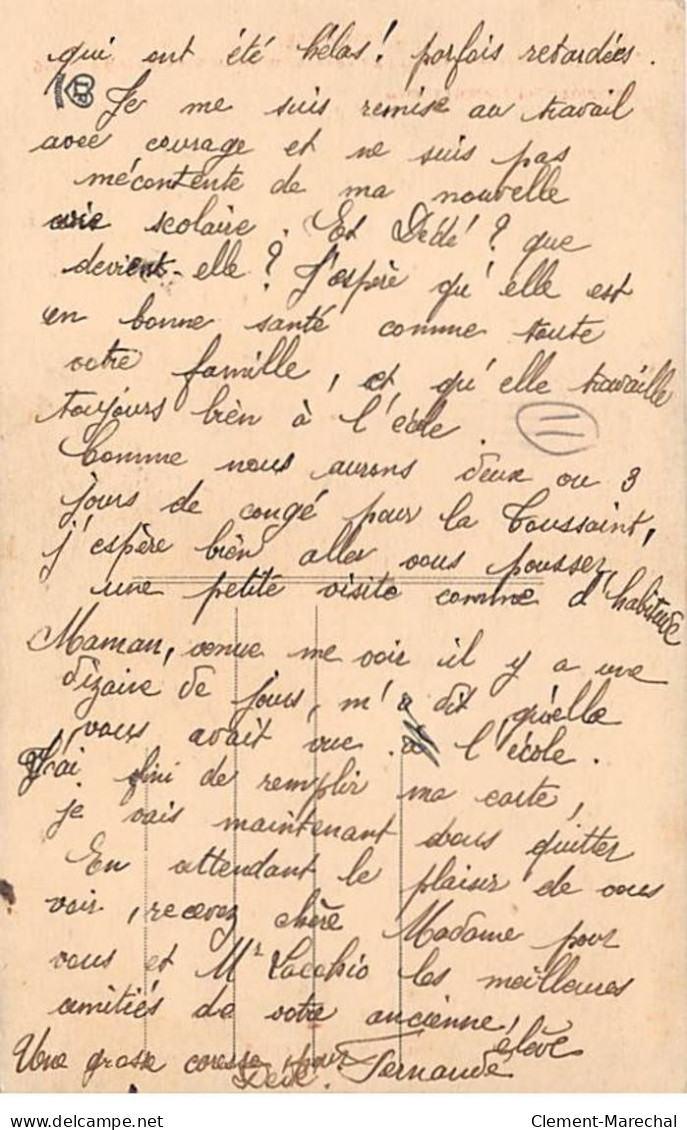 qui ont été hélas! parfois retardées.
Je me suis remise au travail
avec courage et ne suis pas
mécontente de ma nouvelle
vie scolaire. Et Dédé? que
devient-elle? J'espère qu'elle est
en bonne santé comme toute
votre famille, et qu'elle travaille
toujours bien à l'école.
11
Comme nous aurons deux ou 3
jours de congé pour la Toussaint,
j'espère bien aller vous pousser
une petite visite comme d'habitude
Maman, venue me voir il y a une
dizaine de jours, m'a dit qu'elle
vous avait vue à l'école.
J'ai fini de remplir ma carte,
je vais maintenant vous quitter
En attendant le plaisir de vous
voir, recevez chère Madame pour
vous et Mr les meilleures
amitiés de votre ancienne élève
Une grosse caresse pour
Dédé. Fernande
Clement-Marechal